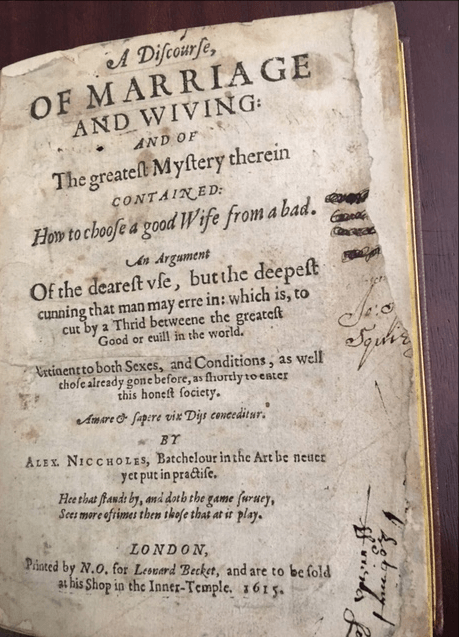 A Discourſe,
OF MARRIAGE
AND WIVING:
AND OF
The greateſt Myſtery therein
CONTAINED:
How to chooſe a good Wife from a bad.
An Argument
Of the deareſt vſe, but the deepeſt
cunning that man may erre in: which is, to
cut by a Thrid betweene the greateſt
Good or euill in the world.
Pertinent to both Sexes, and Conditions, as well
thoſe already gone before, as ſhortly to enter
this honeſt ſociety.
Amare & ſapere vix Dijs conceditur.
BY
ALEX. NICCHOLES, Batchelour in the Art he neuer
yet put in practiſe.
Hee that ſtands by, and doth the game ſuruey,
Sees more oftimes then thoſe that at it play.
LONDON,
Printed by N.O. for Leonard Becket, and are to be ſold
at his Shop in the Inner-Temple. 1615.